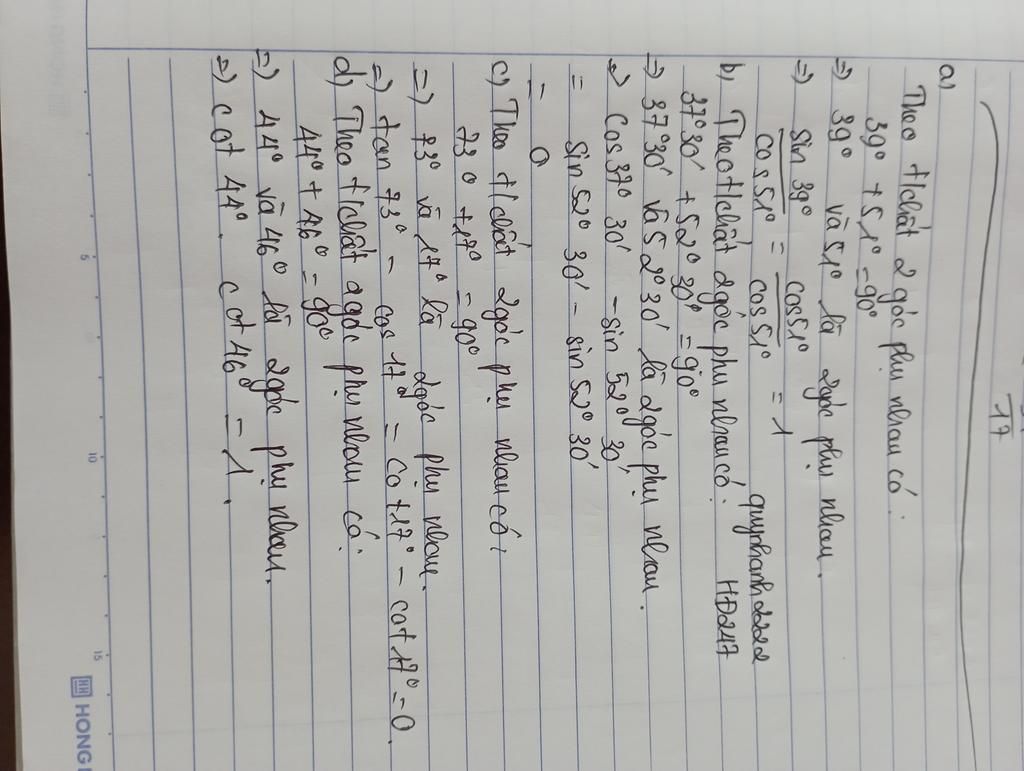 17
a)
Theo t/chất 2 góc phụ nhau có :
39° + 51° = 90°
=) 39° và 51° là 2góc phụ nhau.
=) sin 39° / cos 51° = cos 51° / cos 51° = 1
quynhanh2222
HĐ247
b) Theo t/chất 2góc phụ nhau có :
37°30' + 52°30' = 90°
=) 37°30' và 52°30' là 2góc phụ nhau.
=) cos 37° 30' - sin 52° 30'
= sin 52° 30' - sin 52° 30'
= 0
c) Theo t/chất 2góc phụ nhau có :
73° + 17° = 90°
=) 73° và 17° là 2góc phụ nhau.
=) tan 73° - cos 17° = cot 17° - cot 17° = 0.
d) Theo t/chất 2góc phụ nhau có :
44° + 46° = 90°
=) 44° và 46° là 2góc phụ nhau.
=) cot 44° . cot 46° = 1.
5 10 15
HH HONG